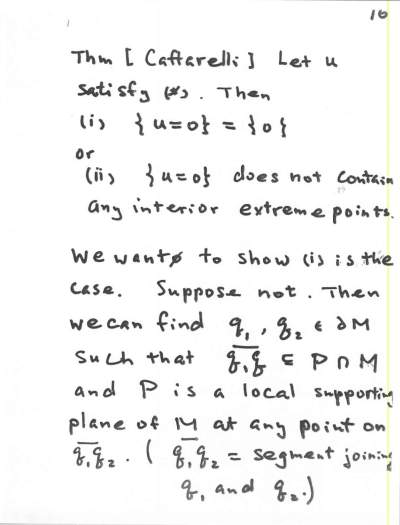 16
Thm [ Caffarelli ] Let u
satisfy (*). Then
(i) {u=0} = {0}
or
(ii) {u=0} does not contain
any interior extreme points.
We want to show (i) is the
case. Suppose not. Then
we can find q₁, q₂ ∈ ∂M
such that q̅₁q̅ ⊆ P ∩ M
and P is a local supporting
plane of M at any point on
q̅₁q̅₂. ( q̅₁q̅₂ = segment joining
q₁ and q₂.)